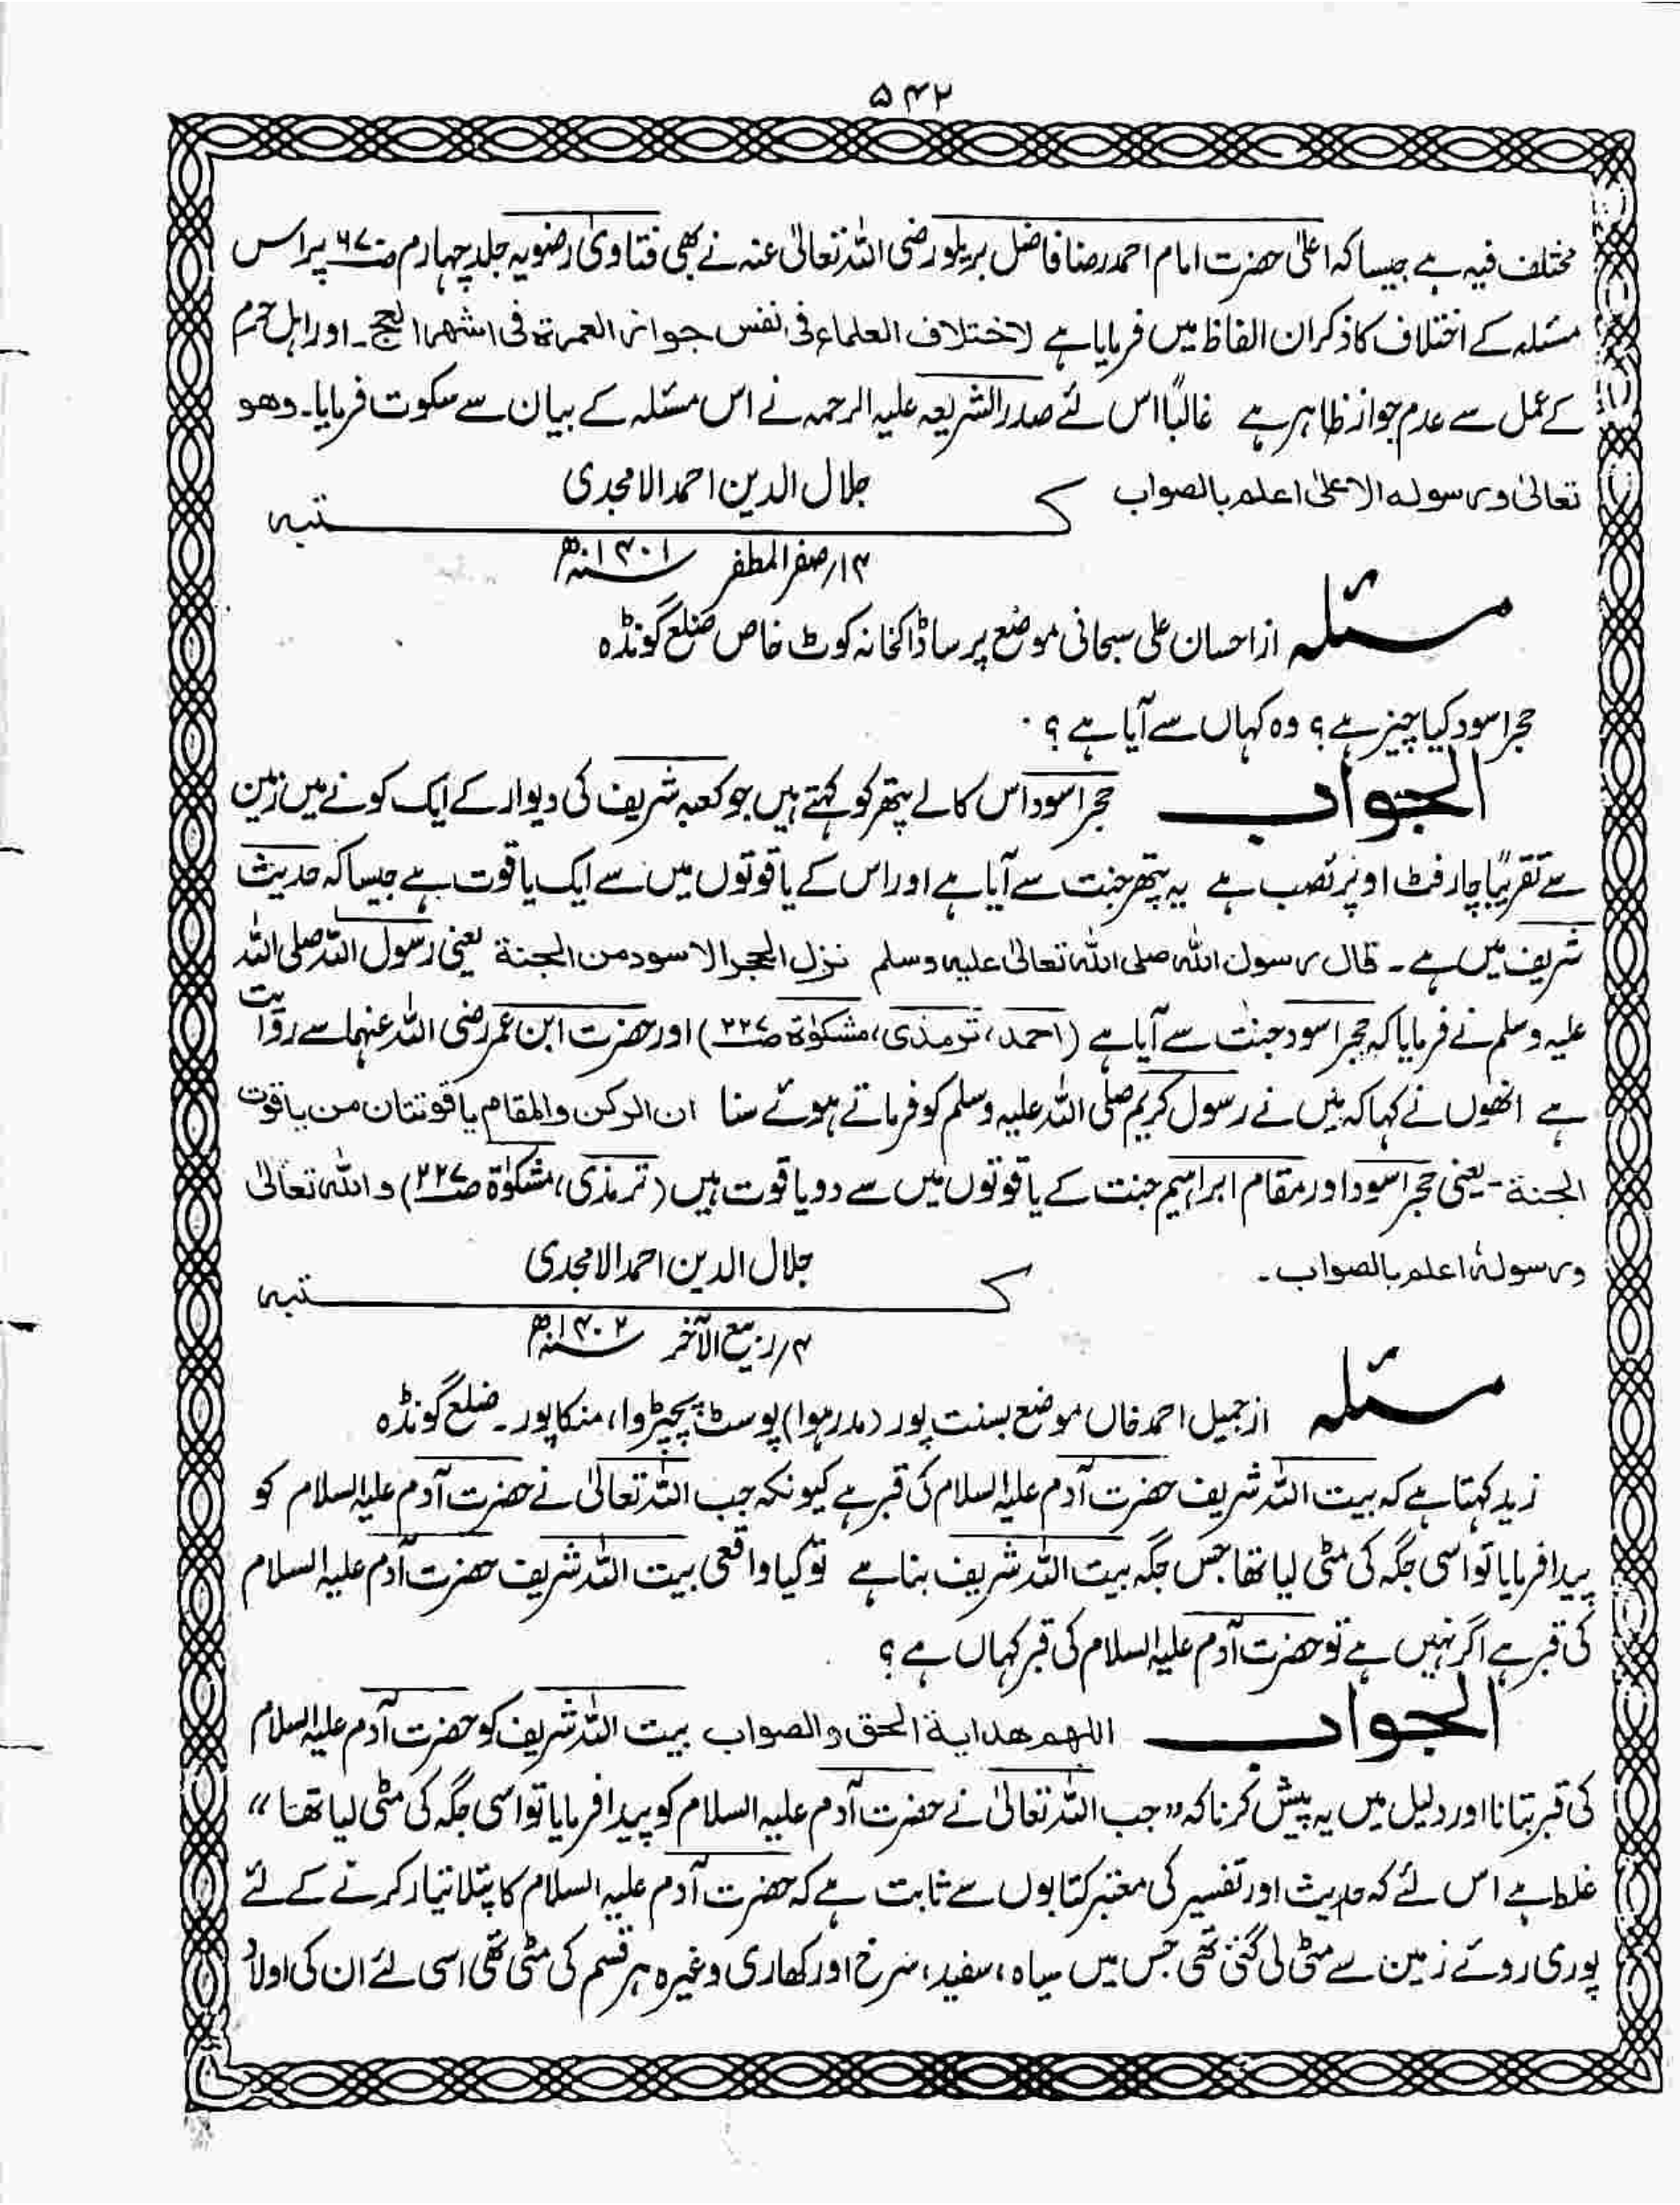 ۵۴۲
مختلف فیہ ہے جیسا کہ اعلیٰ حضرت امام احمد رضا فاضل بریلور رضی اللہ تعالیٰ عنہ نے بھی فتاویٰ رضویہ جلد چہارم ص۶۷ پر اس
مسئلہ کے اختلاف کا ذکر ان الفاظ میں فرمایا ہے لاختلاف العلماء فی نفس جواز العمرة فی اشھر الحج ۔ اور اہل حرم
کے عمل سے عدم جواز ظاہر ہے غالباً اس لئے صدر الشریعہ علیہ الرحمہ نے اس مسئلہ کے بیان سے سکوت فرمایا۔ وھو
تعالیٰ ورسولہ الاعلیٰ اعلم بالصواب
جلال الدین احمد الامجدی
کتبہ
۱۳؍ صفر المظفر ۱۴۰۱ھ
مسئلہ از احسان علی سبحانی موضع پرسا ڈاکخانہ کوٹ خاص ضلع گونڈہ
حجر اسود کیا چیز ہے؟ وہ کہاں سے آیا ہے؟
الجواب حجر اسود اس کالے پتھر کو کہتے ہیں جو کعبہ شریف کی دیوار کے ایک کونے میں زمین
سے تقریباً چار فٹ اوپر نصب ہے یہ پتھر جنت سے آیا ہے اور اس کے یاقوتوں میں سے ایک یاقوت ہے جیسا کہ حدیث
شریف میں ہے۔ قال رسول اللہ صلی اللہ تعالیٰ علیہ وسلم نزل الحجر الاسود من الجنة یعنی رسول اللہ صلی اللہ
علیہ وسلم نے فرمایا کہ حجر اسود جنت سے آیا ہے (احمد، ترمذی، مشکوٰة ص۲۲۷) اور حضرت ابن عمر رضی اللہ عنہما سے روایت
ہے انھوں نے کہا کہ میں نے رسول کریم صلی اللہ علیہ وسلم کو فرماتے ہوئے سنا ان الرکن والمقام یاقوتتان من یاقوت
الجنة ۔ یعنی حجر اسود اور مقام ابراہیم جنت کے یاقوتوں میں سے دو یاقوت ہیں (ترمذی، مشکوٰة ص۲۲۷) واللہ تعالیٰ
ورسولہٗ اعلم بالصواب۔
جلال الدین احمد الامجدی
کتبہ
۴؍ ربیع الآخر ۱۴۰۲ھ
مسئلہ از جمیل احمد خاں موضع بسنت پور (مدرہوا) پوسٹ پچپڑوا، منکاپور۔ ضلع گونڈہ
زید کہتا ہے کہ بیت اللہ شریف حضرت آدم علیہ السلام کی قبر ہے کیونکہ جب اللہ تعالیٰ نے حضرت آدم علیہ السلام کو
پیدا فرمایا تو اسی جگہ کی مٹی لیا تھا جس جگہ بیت اللہ شریف بنا ہے تو کیا واقعی بیت اللہ شریف حضرت آدم علیہ السلام
کی قبر ہے اگر نہیں ہے تو حضرت آدم علیہ السلام کی قبر کہاں ہے؟
الجواب اللھم ھدایة الحق والصواب بیت اللہ شریف کو حضرت آدم علیہ السلام
کی قبر بتانا اور دلیل میں یہ پیش کرنا کہ "جب اللہ تعالیٰ نے حضرت آدم علیہ السلام کو پیدا فرمایا تو اسی جگہ کی مٹی لیا تھا"
غلط ہے اس لئے کہ حدیث اور تفسیر کی معتبر کتابوں سے ثابت ہے کہ حضرت آدم علیہ السلام کا پتلا تیار کرنے کے لئے
پوری روئے زمین سے مٹی لی گئی تھی جس میں سیاہ، سفید، سرخ اور کھاری وغیرہ ہر قسم کی مٹی تھی اسی لئے ان کی اولاد